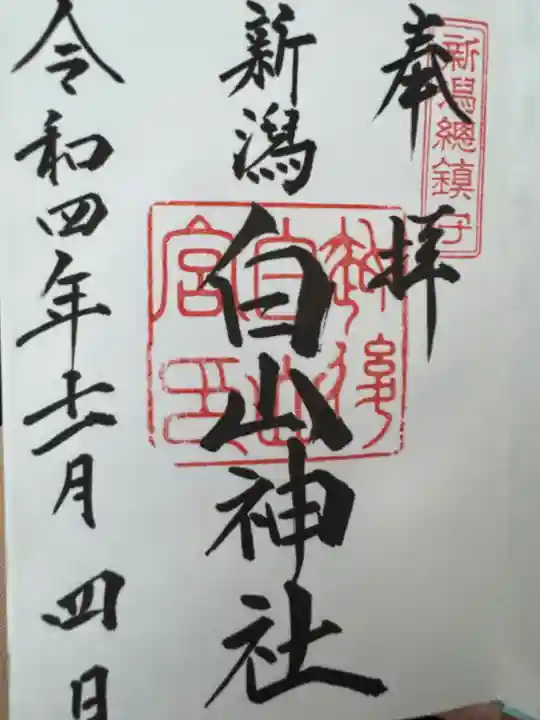 新潟總鎮守
奉拝
新潟
白山神社
越後白山宮印
令和四年十一月四日